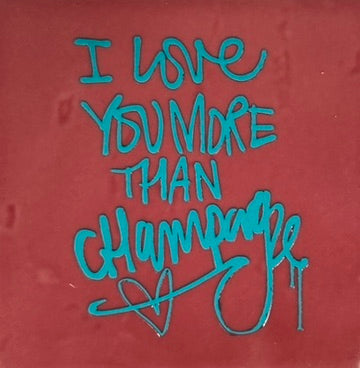 I LOVE
YOU MORE
THAN
CHampagne